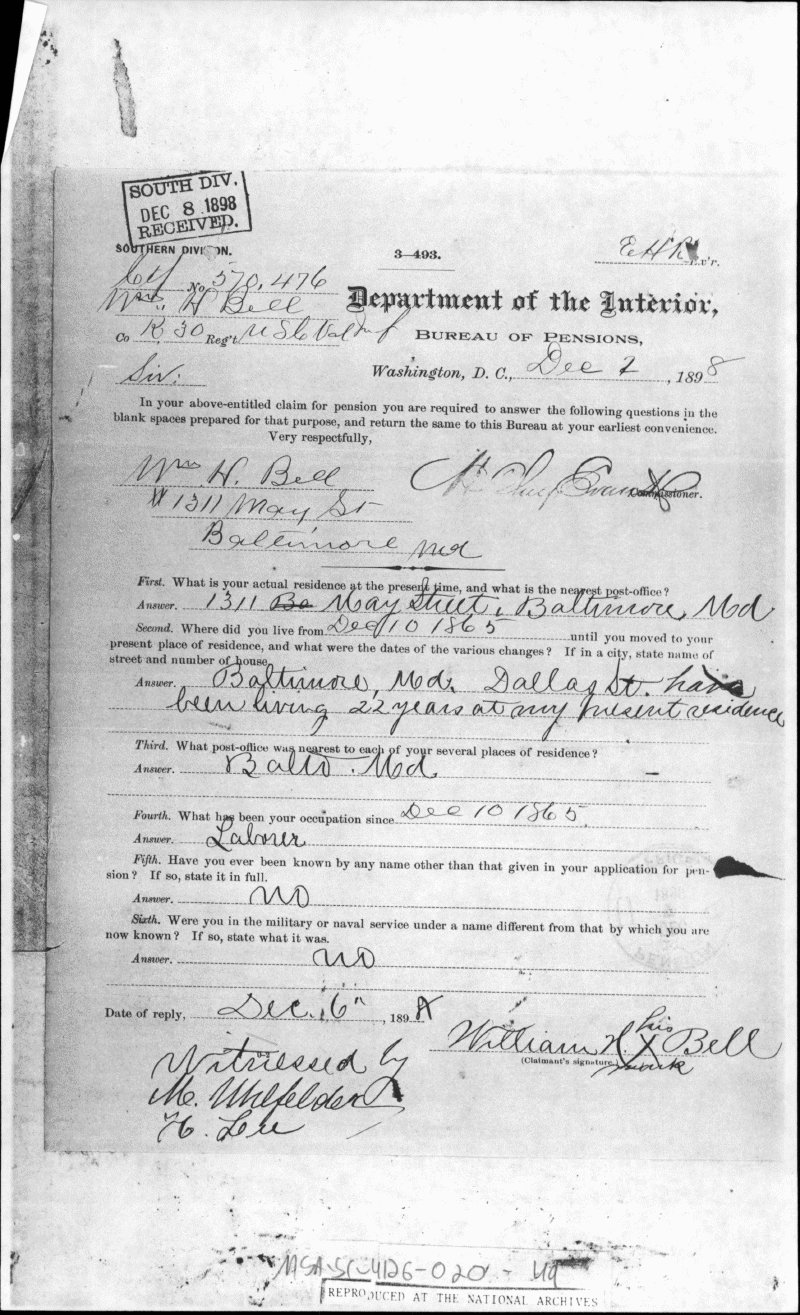 SOUTH DIV.
DEC 8 1898
RECEIVED.
SOUTHERN DIVISION.
3—493.
E H R Ev'r.
Ctf No 570,476
Wm. H Bell
Department of the Interior,
Co K 30 Reg't U S C Vol Inf
BUREAU OF PENSIONS,
Washington, D. C., Dec 2, 1898
Sir:
In your above-entitled claim for pension you are required to answer the following questions in the
blank spaces prepared for that purpose, and return the same to this Bureau at your earliest convenience.
Very respectfully,
Wm H. Bell
H Clay Evans
Commissioner.
# 1311 May St
Baltimore Md
First. What is your actual residence at the present time, and what is the nearest post-office?
Answer. 1311 Ba May Street, Baltimore, Md
Second. Where did you live from Dec 10 1865 until you moved to your
present place of residence, and what were the dates of the various changes? If in a city, state name of
street and number of house.
Answer. Baltimore, Md. Dallas St. have
been living 22 years at my present residence
Third. What post-office was nearest to each of your several places of residence?
Answer. Balto. Md.
Fourth. What has been your occupation since Dec 10 1865.
Answer. Laborer
Fifth. Have you ever been known by any name other than that given in your application for pen-
sion? If so, state it in full.
Answer. no
Sixth. Were you in the military or naval service under a name different from that by which you are
now known? If so, state what it was.
Answer. no
Date of reply, Dec. 6", 1898
William H. his X mark Bell
(Claimant's signature.)
Witnessed by
M. Uhlfelder
H. Lee
MSA-SC-4126-020-49
REPRODUCED AT THE NATIONAL ARCHIVES